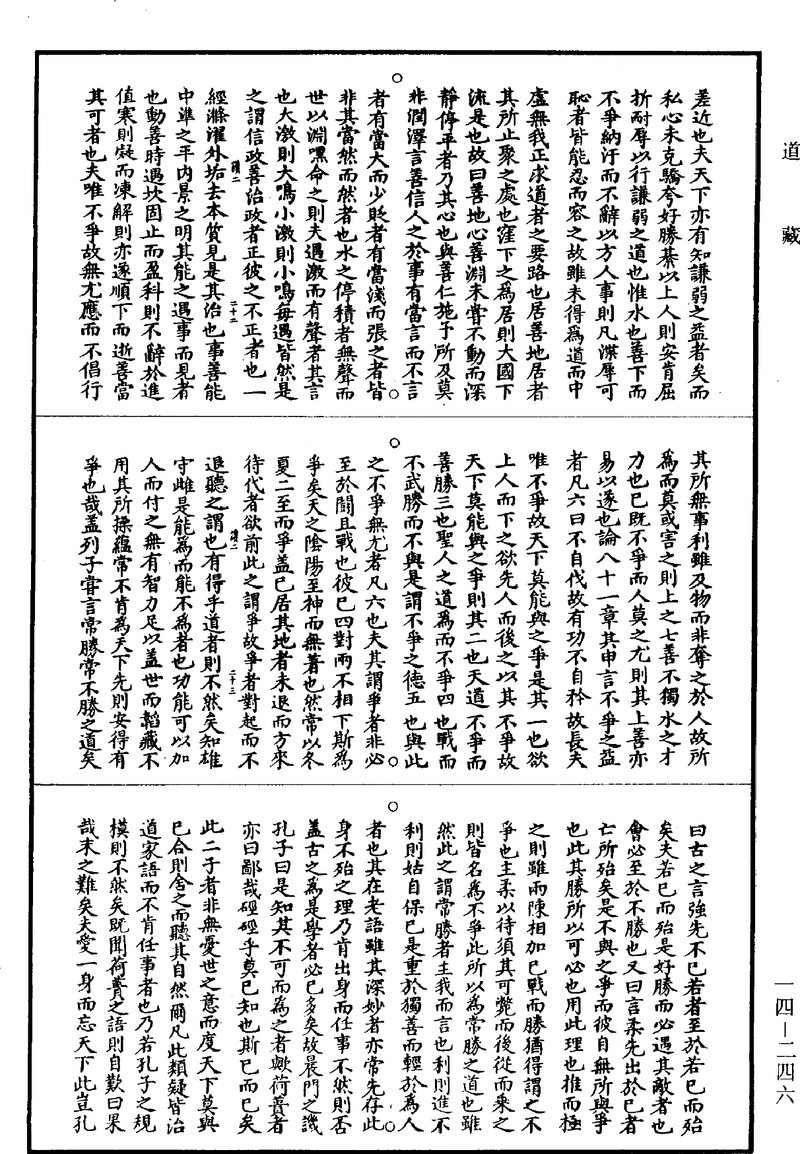 道藏
差近也夫天下亦有知謙弱之益者矣而
私心未克驕夸好勝綦以上人則安肯屈
折耐辱以行謙弱之道也惟水也善下而
不爭納汙而不辭以方人事則凡滐犀可
恥者皆能忍而容之故雖未得為道而中
虛無我正求道者之要路也居善地居者
其所止聚之處也窪下之為居則大國下
流是也故曰善地心善淵未嘗不動而深
靜停平者乃其心也與善仁施予所及莫
非潤澤言善信人之於事有當言而不言
者有當大而少貶者有當淺而張之者皆
非其當然而然者也水之停積者無聲而
世以淵嘿命之則夫遇激而有聲者其言
也大激則大鳴小激則小鳴每遇皆然是
之謂信政善治政者正彼之不正者也一
經滌濯外垢去本質見是其治也事善能
中準之平內景之明其能之遇事而見者
也動善時遇坎固止而盈科則不辭於進
值寒則凝而凍解則亦遂順下而逝善當
其可者也夫唯不爭故無尤應而不倡行
其所無事利雖及物而非奪之於人故所
為而莫或害之則上之七善不獨水之才
力也已既不爭而人莫之尤則其上善亦
易以遂也論八十一章其申言不爭之益
者凡六曰不自伐故有功不自矜故長夫
唯不爭故天下莫能與之爭是其一也欲
上人而下之欲先人而後之以其不爭故
天下莫能與之爭則其二也天道不爭而
善勝三也聖人之道為而不爭四也戰而
不武勝而不與是謂不爭之德五也與此
之不爭無尤者凡六也夫其謂爭者非必
至於鬬且戰也彼已四對兩不相下斯為
爭矣天之陰陽至神而無著也然常以冬
夏二至而爭蓋已居其地者未退而方來
待代者欲前此之謂爭故爭者對起而不
退聽之謂也有得乎道者則不然矣知雄
守雌是能為而能不為者也功能可以加
人而付之無有智力足以蓋世而韜藏不
用其所操蘊常不肯為天下先則安得有
爭也哉蓋列子嘗言常勝常不勝之道矣
曰古之言強先不已若者至於若已而殆
矣夫若已而殆是好勝而必遇其敵者也
會必至於不勝也又曰言柔先出於已者
亡所殆矣是不與之爭而彼自無所與爭
也此其勝所以可必也用此理也推而極
之則雖兩陳相加已戰而勝猶得謂之不
爭也主柔以待須其可斃而後從而乘之
則皆名為不爭此所以為常勝之道也雖
然此之謂常勝者主我而言也利則進不
利則姑自保已是重於獨善而輕於為人
者也其在老語雖其深妙者亦常先存此
身不殆之理乃肯出身而任事不然則否
蓋古之為是學者必已多矣故晨門之譏
孔子曰是知其不可而為之者歟荷蕢者
亦曰鄙哉硜硜乎莫已知也斯已而已矣
此二子者非無憂世之意而度天下莫與
已合則舍之而聽其自然爾凡此類疑皆治
道家語而不肯任事者也乃若孔子之規
模則不然矣既聞荷蕢之語則自歎曰果
哉末之難矣夫愛一身而忘天下此豈孔
一四—二四六